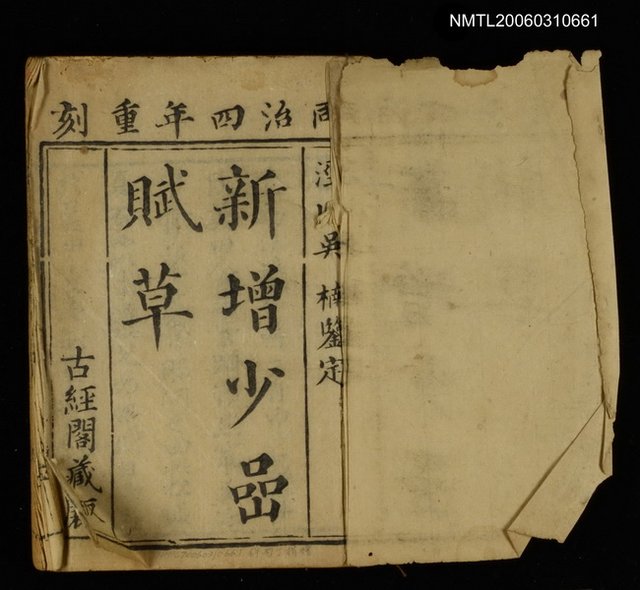 NMTL20060310661
同治四年重刻
吳 楠鑒定
新增少嵒
賦草
古經閣藏